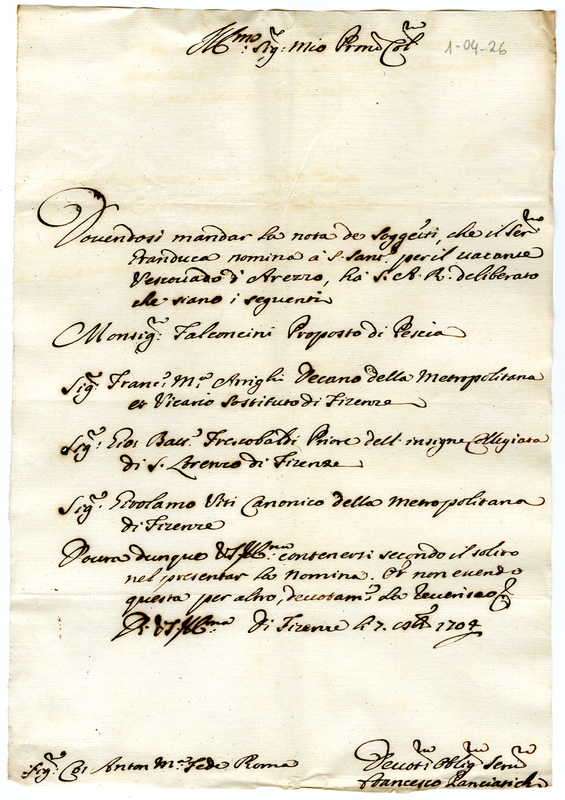 Ill.mo Sig.r mio Pron. Col.mo
1-04-26
Dovendosi mandar la nota de Soggetti, che il Ser.mo
Granduca nomina à S. Sant.à per il vacante
Vescovado d'Arezzo, ha S. A. R. deliberato
che siano i seguenti
Monsig.r Falconcini Proposto di Pescia
Sig.r Franc.o M.a Arrighi Decano della Metropolitana
et Vicario Sostituto di Firenze
Sig.r Gio: Batt.a Frescobaldi Priore dell'insigne Collegiata
di S. Lorenzo di Firenze
Sig.r Girolamo Viti Canonico della Metropolitana
di Firenze
Dovrà dunque VS. Ill.ma contenersi secondo il solito
nel presentar la Nomina. Et non avendo
questa per altro, devotam.e La reverisco
Di VS. Ill.ma Di Firenze li 7. 1704
Sig.r Co: Anton M.a Fede Roma
Devot.mo Oblig.mo Ser.re
Francesco Panciatichi